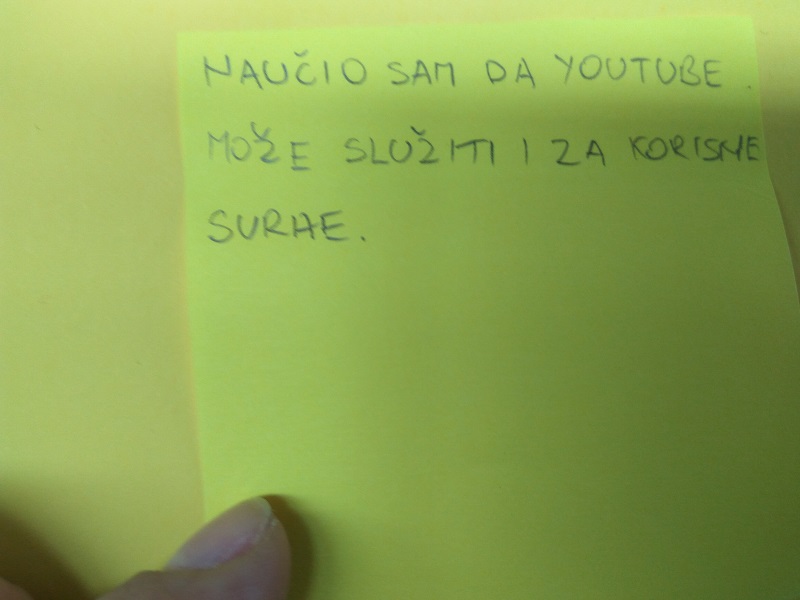 NAUČIO SAM DA YOUTUBE
MOŽE SLUŽITI I ZA KORISNE
SURHE.